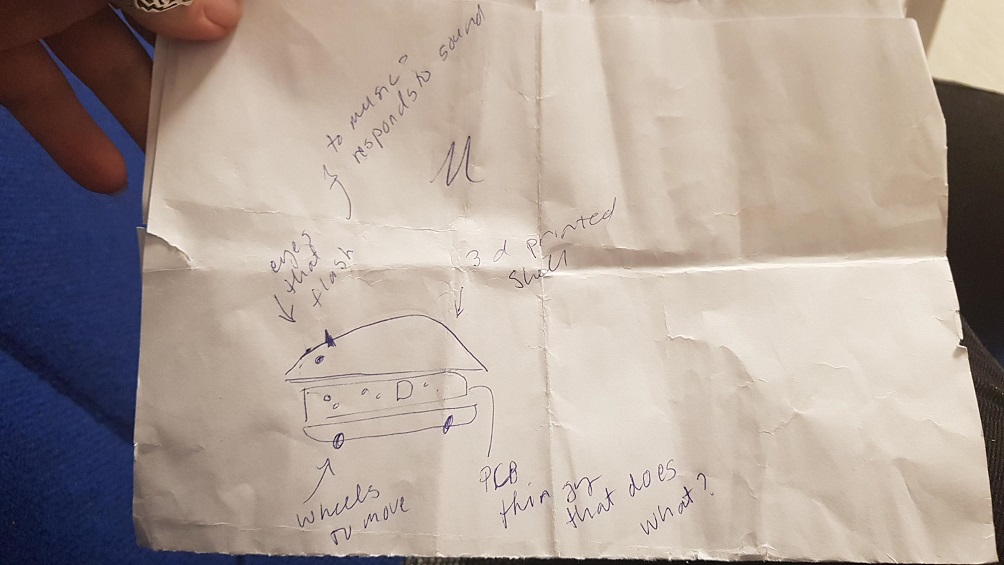 to music
responds to sound
eyes
that
flash
3d printed
shell
wheels
to move
PCB
thingy
that does
what?